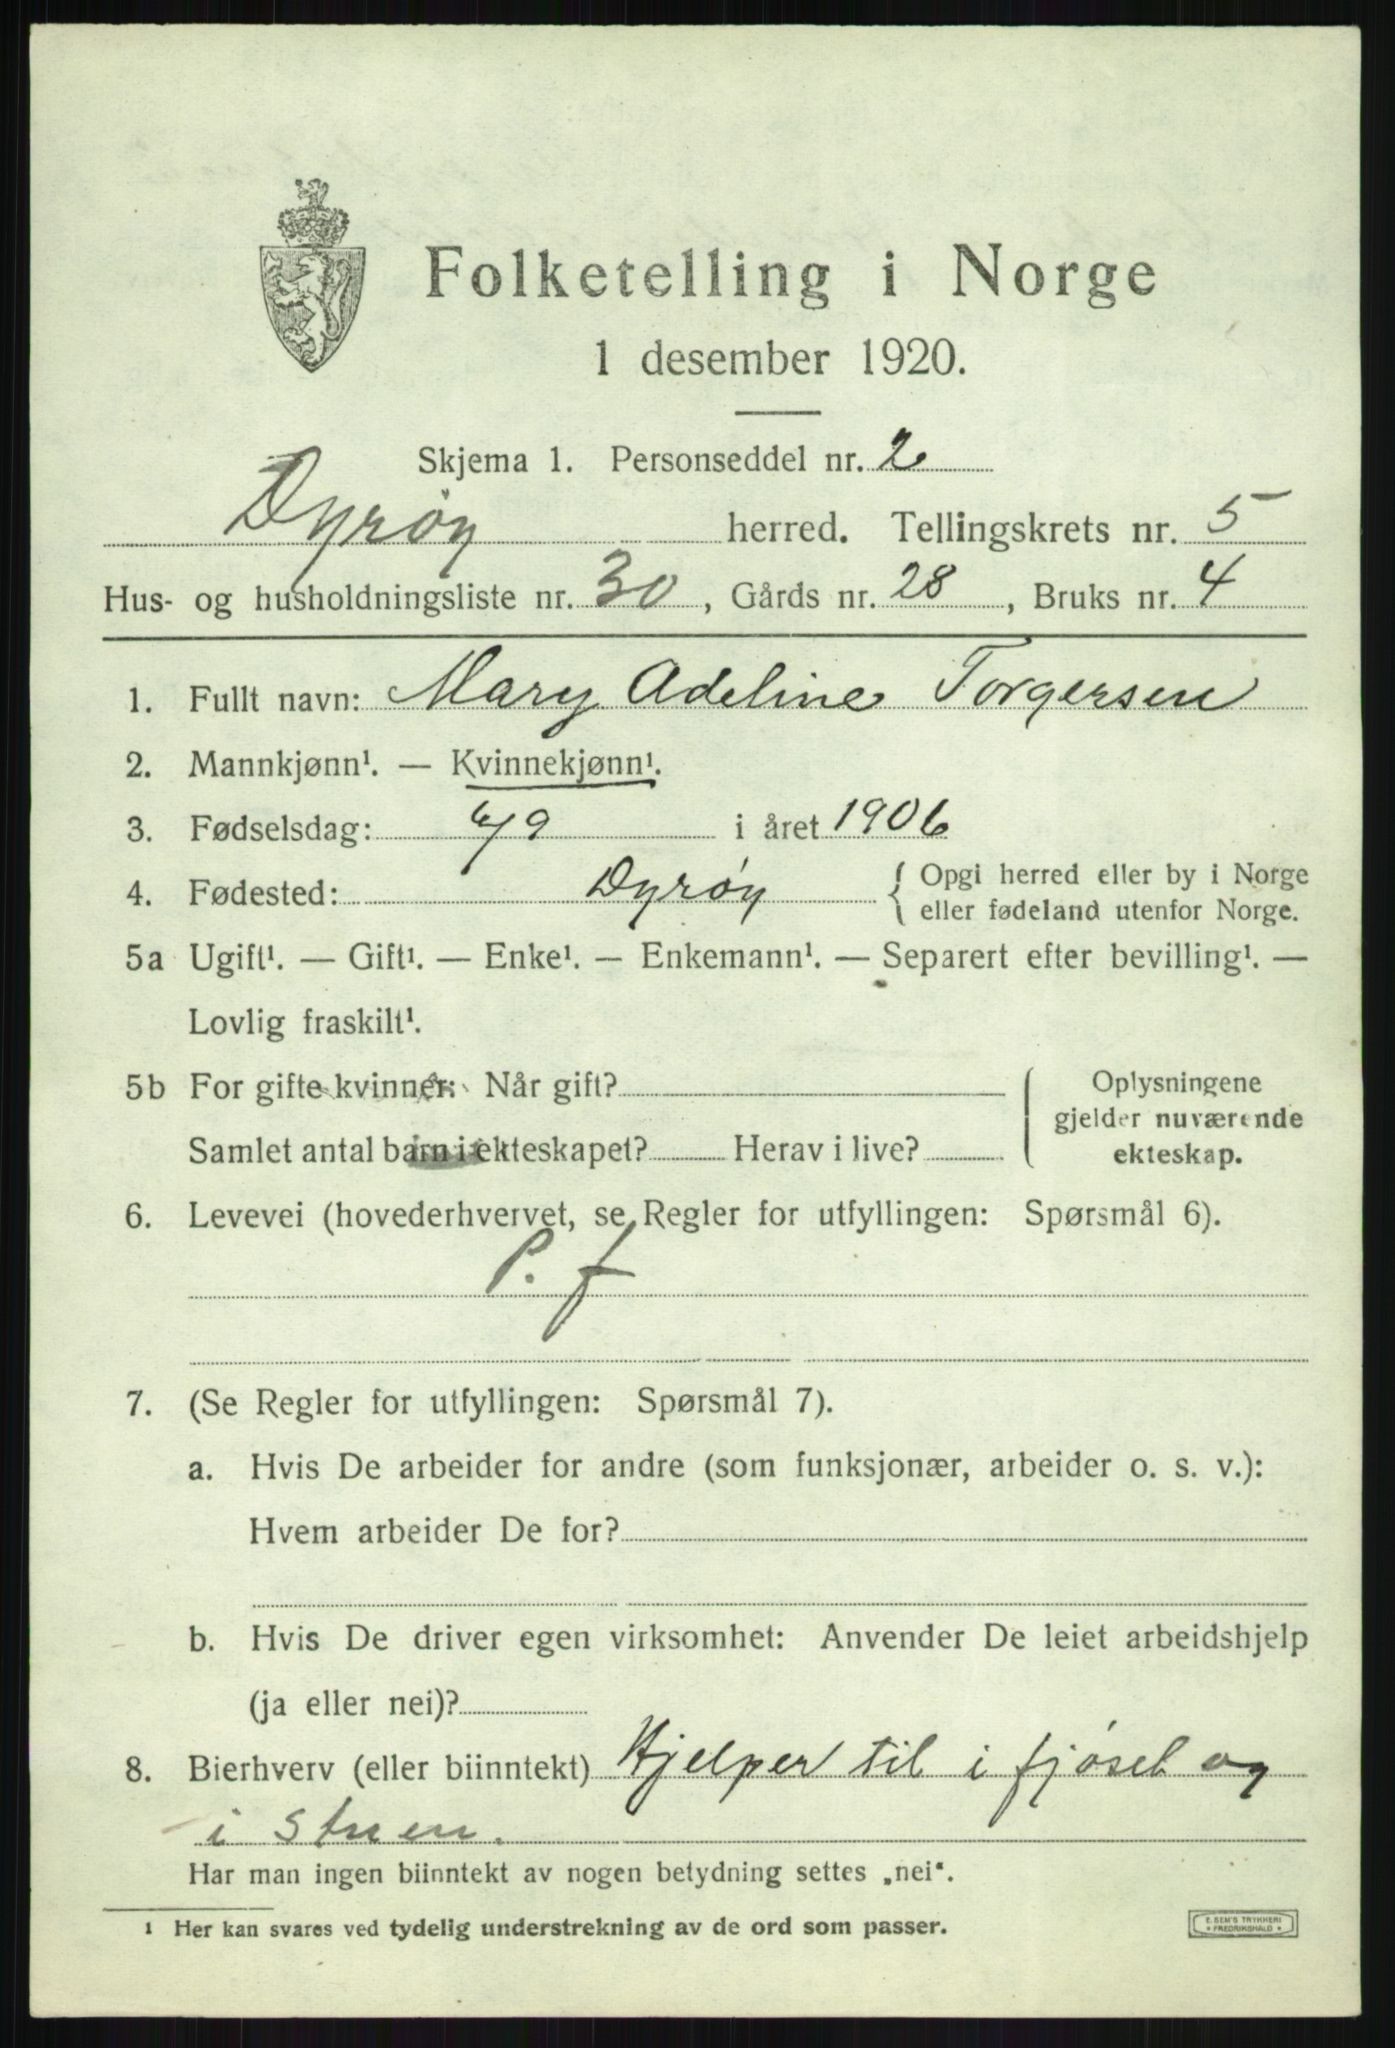 Folketelling i Norge
1 desember 1920.
Skjema 1. Personseddel nr. 2
Dyrøy herred. Tellingskrets nr. 5
Hus- og husholdningsliste nr. 30, Gårds nr. 28, Bruks nr. 4
1. Fullt navn: Mary Adeline Torgersen
2. Mannkjønn¹. — Kvinnekjønn¹.
3. Fødselsdag: 6/9 i året 1906
4. Fødested: Dyrøy { Opgi herred eller by i Norge
eller fødeland utenfor Norge.
5a Ugift¹. — Gift¹. — Enke¹. — Enkemann¹. — Separert efter bevilling¹. —
Lovlig fraskilt¹.
5b For gifte kvinner: Når gift?
Samlet antal barn i ekteskapet? Herav i live?
Oplysningene
gjelder nuværende
ekteskap.
6. Levevei (hovederhvervet, se Regler for utfyllingen: Spørsmål 6).
P. f
7. (Se Regler for utfyllingen: Spørsmål 7).
a. Hvis De arbeider for andre (som funksjonær, arbeider o. s. v.):
Hvem arbeider De for?
b. Hvis De driver egen virksomhet: Anvender De leiet arbeidshjelp
(ja eller nei)?
8. Bierhverv (eller biinntekt) Hjelper til i fjøset og
i stuen.
Har man ingen biinntekt av nogen betydning settes „nei“.
¹ Her kan svares ved tydelig understrekning av de ord som passer.
E. SEM'S TRYKKERI
• FREDRIKSHALD •